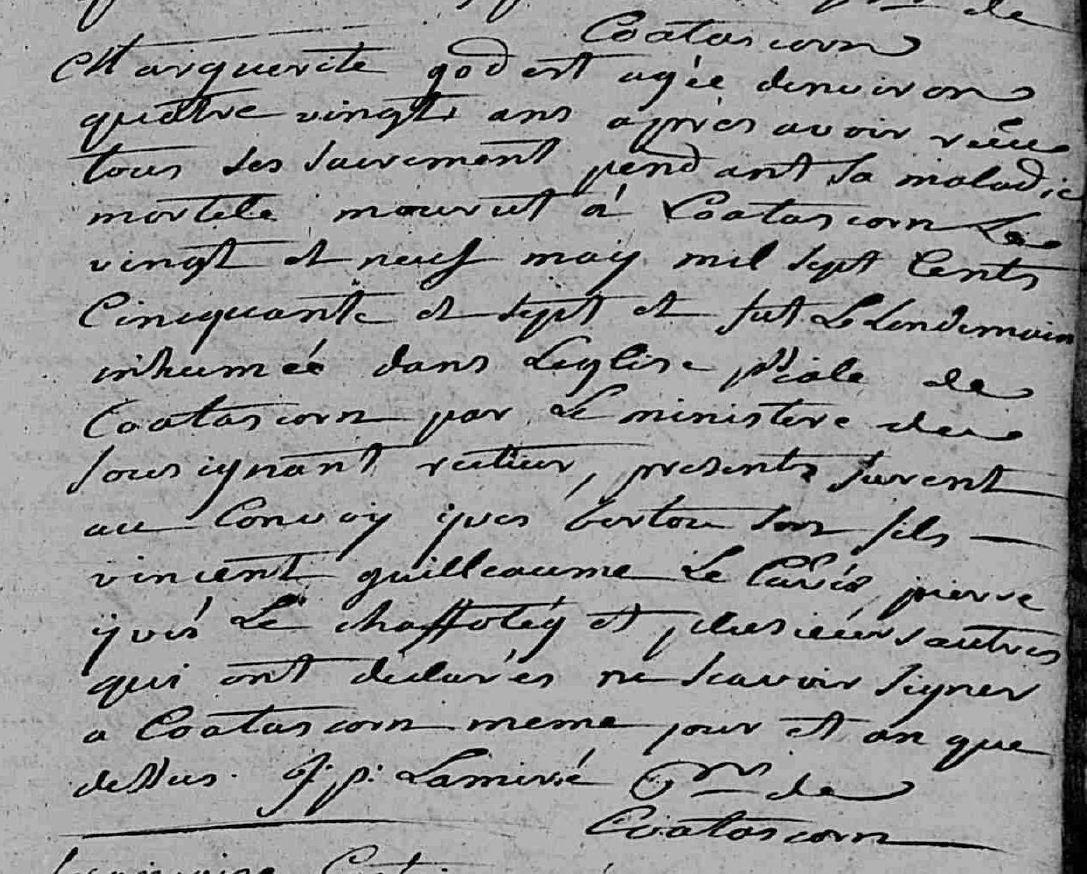 de
Coatascorn
Marguerite godest agée denviron
quattre vingts ans après avoir reçue
tous ses sacrement pendant sa maladie
mortele mourut á Coatascorn Le
vingt et neuf may mil sept Cents
Cincquante et sept et fut Le Lendemain
inhumée dans Leglise pšiale de
Coatascorn par Le ministere du
sousignant recteur, presents furent
au Convoy yves bertou son fils
vincent guilleaume Le pierre
yves Le et plusieurs autres
qui ont déclarés ne scavoir signer
a Coatascorn meme jour et an que
dessus. J: p: Lamivé de
Coatascorn